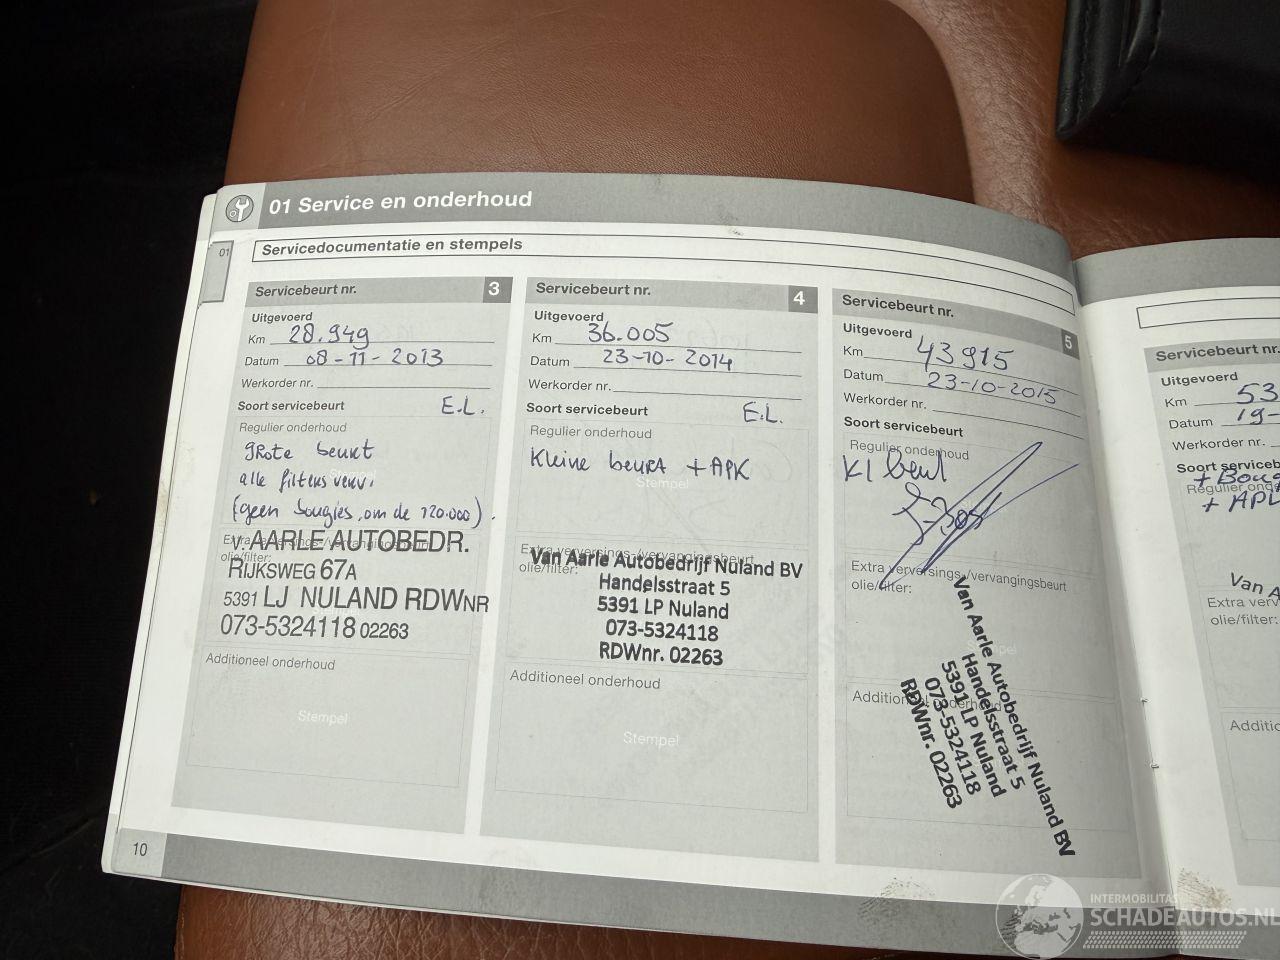 01 Service en onderhoud
01
Servicedocumentatie en stempels
Servicebeurt nr. 3
Uitgevoerd
Km 28.949
Datum 08-11-2013
Werkorder nr.
Soort servicebeurt E.L.
Regulier onderhoud
grote beurt
alle filters verv.
(geen bougies, om de 120.000).
Stempel
Extra verversings-/vervangingsbeurt
olie/filter:
v. AARLE AUTOBEDR.
RIJKSWEG 67A
5391 LJ NULAND RDWNR
073-5324118 02263
Additioneel onderhoud
Stempel
10
Servicebeurt nr. 4
Uitgevoerd
Km 36.005
Datum 23-10-2014
Werkorder nr.
Soort servicebeurt E.L.
Regulier onderhoud
Kleine beurt + APK
Stempel
Extra verversings-/vervangingsbeurt
olie/filter:
Van Aarle Autobedrijf Nuland BV
Handelsstraat 5
5391 LP Nuland
073-5324118
RDWnr. 02263
Additioneel onderhoud
Stempel
Servicebeurt nr. 5
Uitgevoerd
Km 43915
Datum 23-10-2015
Werkorder nr.
Soort servicebeurt
Regulier onderhoud
Kl beurt
Extra verversings-/vervangingsbeurt
olie/filter:
Stempel
Van Aarle Autobedrijf Nuland BV
Handelsstraat 5
5391 LP Nuland
073-5324118
RDWnr. 02263
Additioneel onderhoud
Servicebeurt nr.
Uitgevoerd
Km 53
Datum 19-
Werkorder nr.
Soort serviceb
Regulier onde
+ Boug
+ APK
Van A
Extra verv
olie/filter:
Additio
INTERMOBILITAS
SCHADEAUTOS.NL